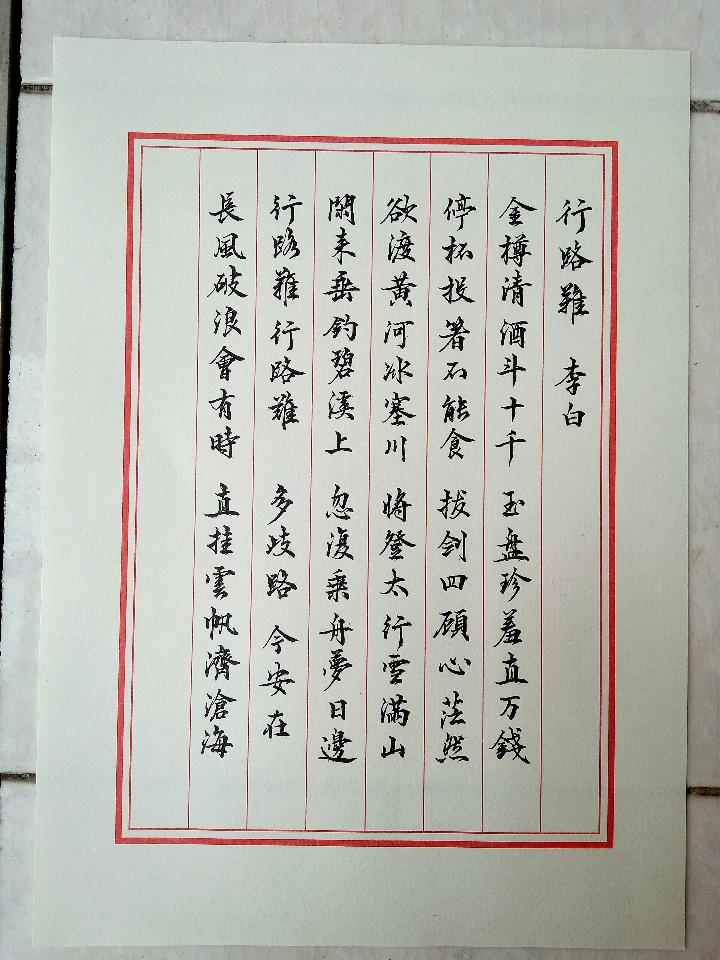 行路難 李白
金樽清酒斗十千 玉盘珍羞直万錢
停杯投著不能食 拔劍四顧心茫然
欲渡黃河冰塞川 將登太行雪滿山
閑来垂釣碧溪上 忽復乘舟夢日邊
行路難行路難 多歧路 今安在
長風破浪會有時 直挂雲帆濟滄海